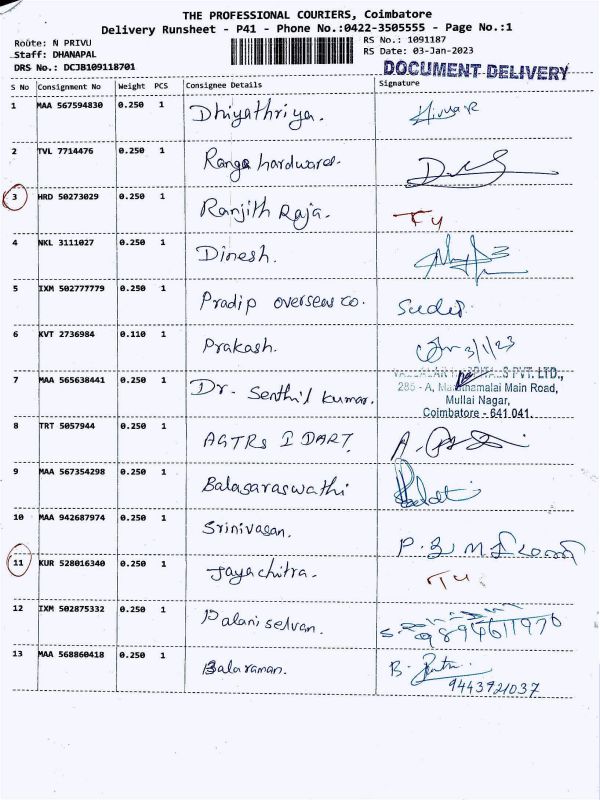 THE PROFESSIONAL COURIERS, Coimbatore
Delivery Runsheet - P41 - Phone No.:0422-3505555 - Page No.:1
Route: N PRIVU
Staff: DHANAPAL
DRS No.: DCJB109118701
RS No.: 1091187
RS Date: 03-Jan-2023
DOCUMENT DELIVERY
S No Consignment No Weight PCS Consignee Details Signature
1 MAA 567594830 0.250 1 Dhiyathriya.
2 TVL 7714476 0.250 1 Ranga hardwares.
3 HRD 50273029 0.250 1 Ranjith Raja.
4 NKL 3111027 0.250 1 Dinesh.
5 IXM 502777779 0.250 1 Pradip overseas co.
6 KVT 2736984 0.110 1 Prakash. 3/1/23
7 MAA 565638441 0.250 1 Dr. Senthil Kumar.
PVT. LTD.,
Main Road,
Mullai Nagar,
Coimbatore - 641 041.
8 TRT 5057944 0.250 1
9 MAA 567354298 0.250 1 Balasaraswathi
10 MAA 942687974 0.250 1 Srinivasan.
11 KUR 528016340 0.250 1 Jayachitra.
12 IXM 502875332 0.250 1 Palaniselvan. 9894611976
13 MAA 568860418 0.250 1 Balaraman. B.
9443921037